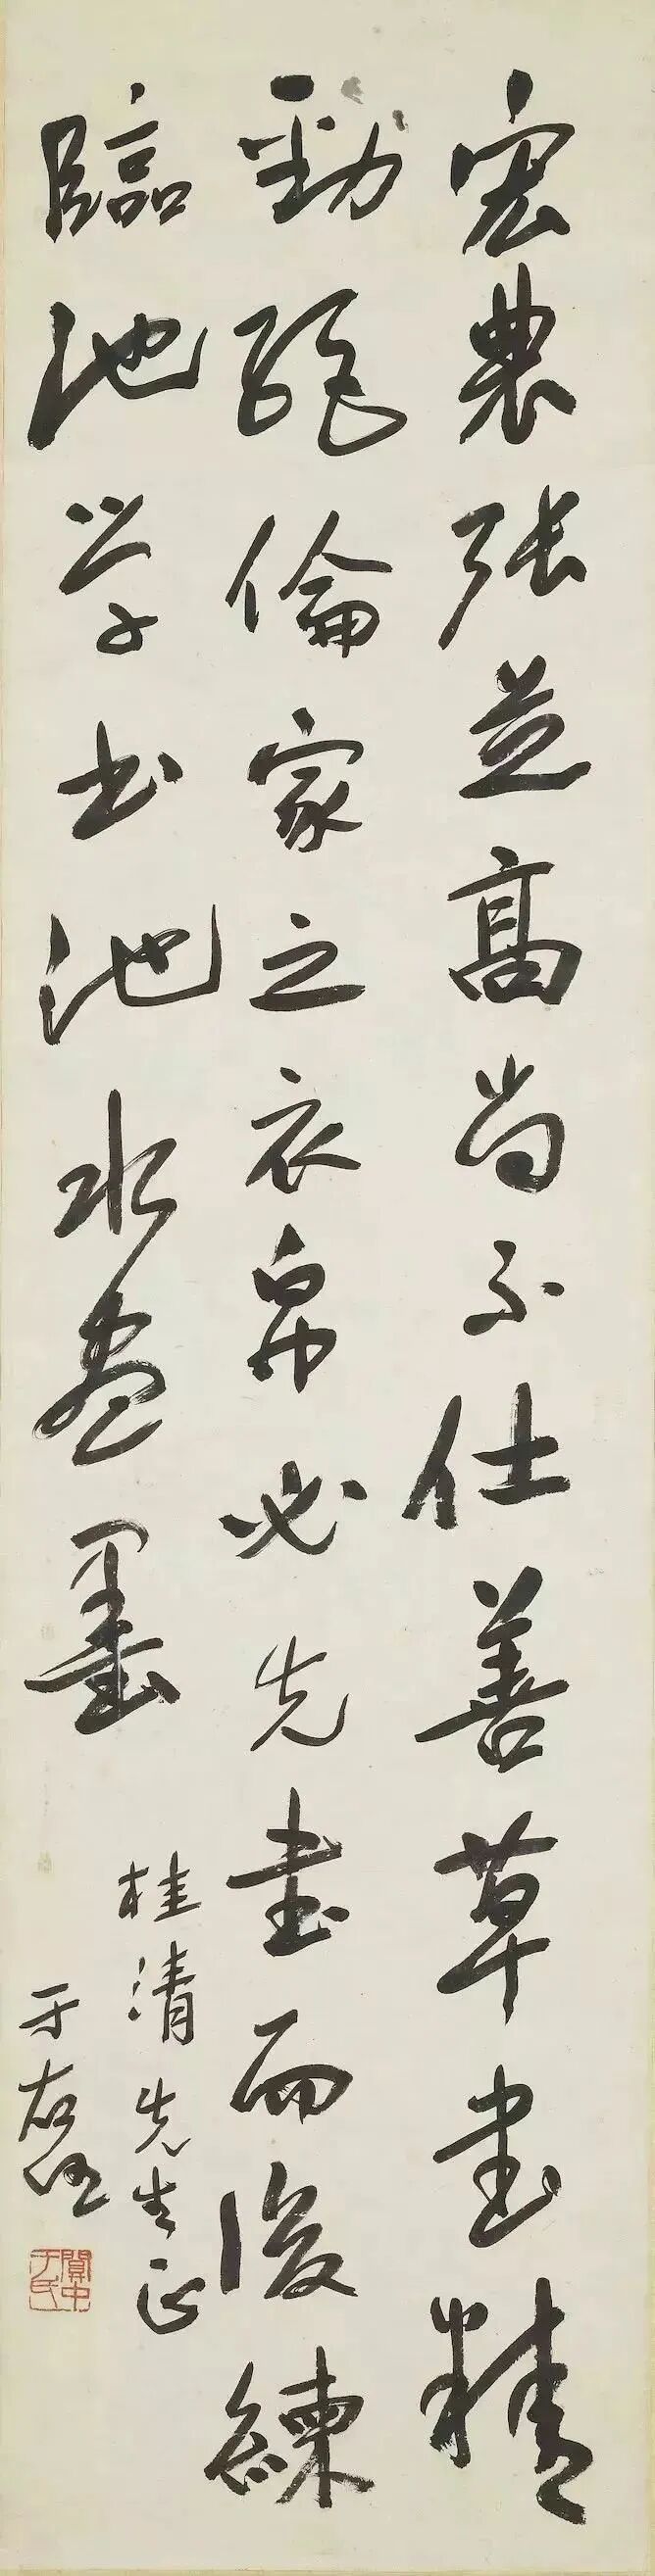 宏農張芝高尚不仕善草書精
勁絕倫家之衣帛必先書而後練
臨池学書池水盡墨
桂清先生正
于右任
關中于氏